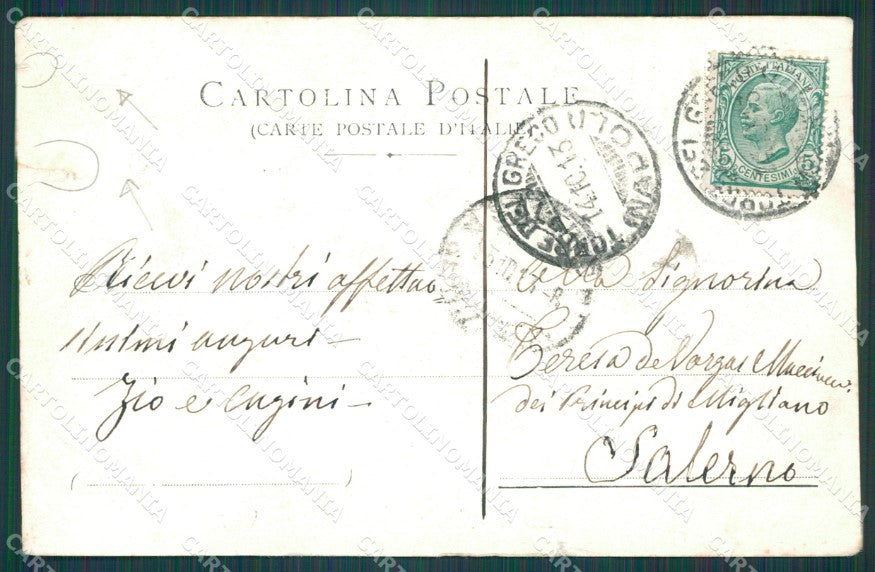 CARTOLINA POSTALE
(CARTE POSTALE D'ITALIE)
POSTE ITALIANE
5 CENTESIMI 5
TORRE DEL GRECO
NAPOLI
14.10.13
Ricevi nostri affettuo
sissimi auguri –
Zio e cugini –
Signorina
Teresa de Vargas
dei Principi di Migliano
Salerno
CARTOLINOMANIA